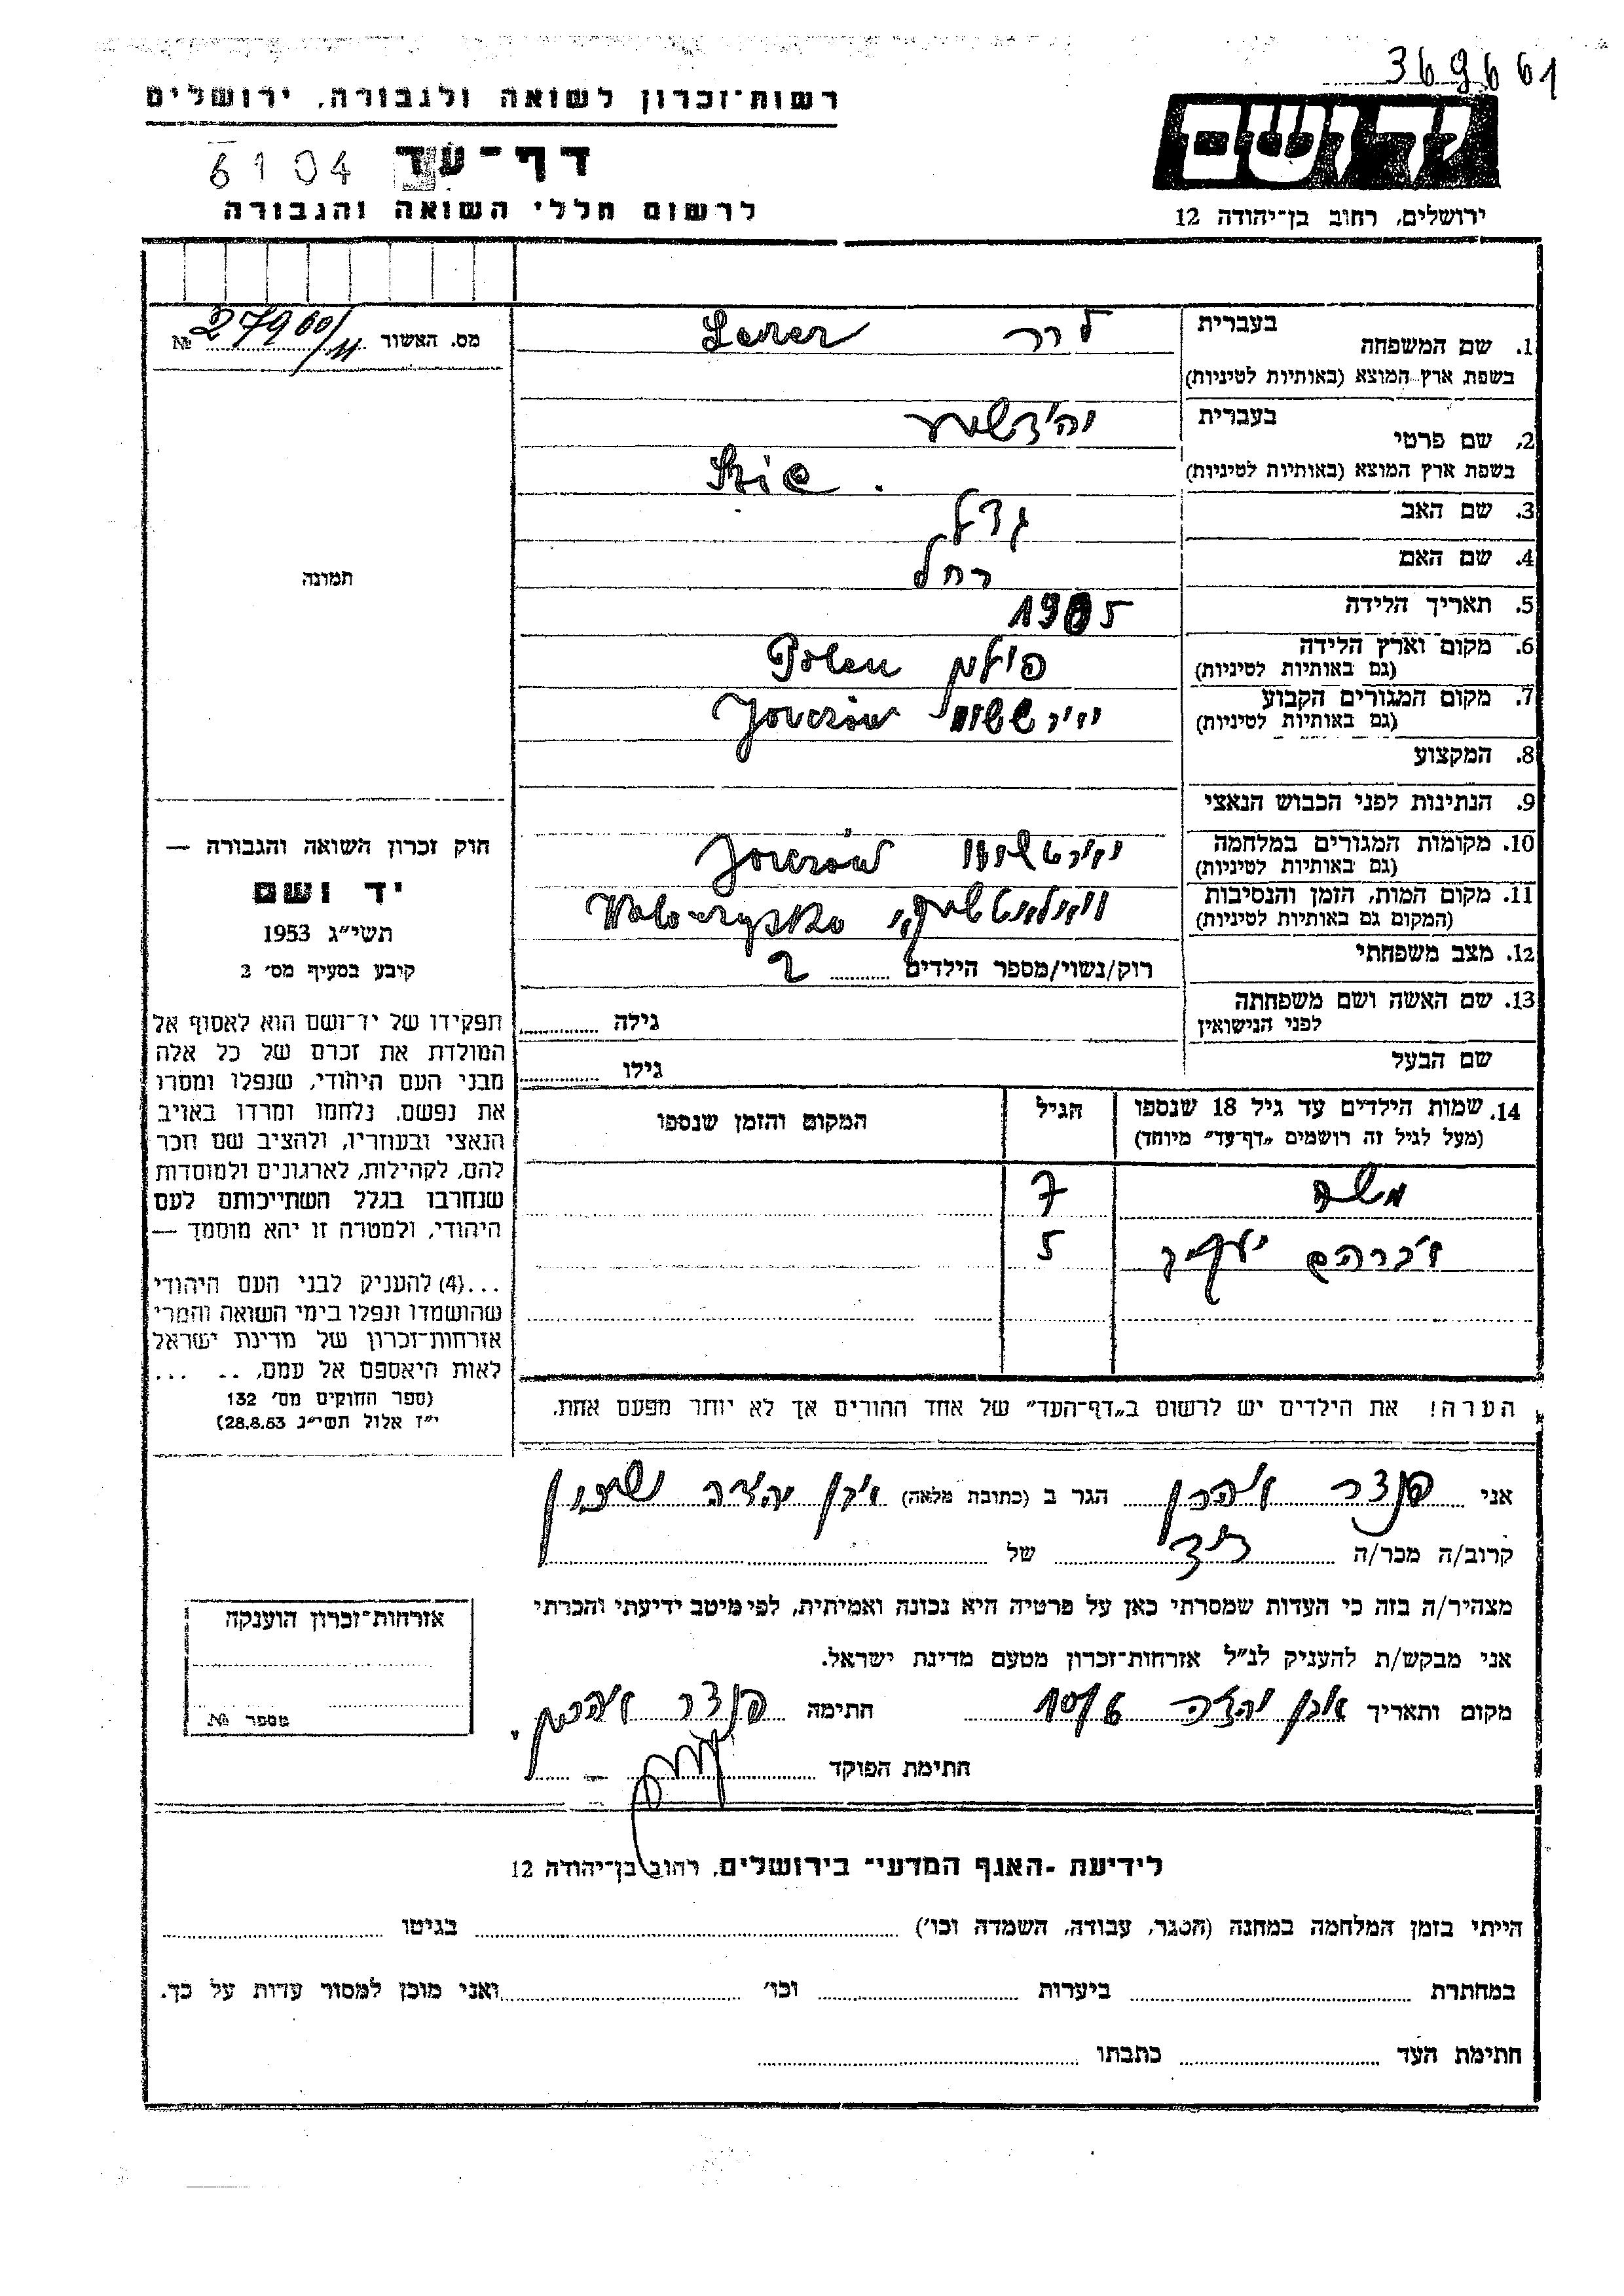 369661
רשות־זכרון לשואה ולגבורה, ירושלים
ידושם
דף־עד
6104
לרשום חללי השואה והגבורה
ירושלים, רחוב בן־יהודה 12
מס. האשור № 27900/11
1. שם המשפחה
בעברית לרר Lerer
בשפת ארץ המוצא (באותיות לטיניות)
2. שם פרטי
בעברית
בשפת ארץ המוצא (באותיות לטיניות)
3. שם האב
4. שם האם רחל
5. תאריך הלידה 1905
6. מקום וארץ הלידה פולין Polen
(גם באותיות לטיניות)
7. מקום המגורים הקבוע
(גם באותיות לטיניות)
8. המקצוע
9. הנתינות לפני הכבוש הנאצי
10. מקומות המגורים במלחמה
(גם באותיות לטיניות)
11. מקום המות, הזמן והנסיבות
(המקום גם באותיות לטיניות)
12. מצב משפחתי רוק/נשוי/מספר הילדים 2
13. שם האשה ושם משפחתה
לפני הנישואין גילה
שם הבעל גילו
14. שמות הילדים עד גיל 18 שנספו הגיל המקום והזמן שנספו
(מעל לגיל זה רושמים "דף־עד" מיוחד)
משה 7
אברהם 5
הערה! את הילדים יש לרשום ב"דף־העד" של אחד ההורים אך לא יותר מפעם אחת.
תמונה
חוק זכרון השואה והגבורה —
יד ושם
תשי״ג 1953
קובע בסעיף מס׳ 2
תפקידו של יד־ושם הוא לאסוף אל
המולדת את זכרם של כל אלה
מבני העם היהודי, שנפלו ומסרו
את נפשם, נלחמו ומרדו באויב
הנאצי ובעוזריו, ולהציב שם וזכר
להם, לקהילות, לארגונים ולמוסדות
שנחרבו בגלל השתייכותם לעם
היהודי, ולמטרה זו יהא מוסמך —
...(4) להעניק לבני העם היהודי
שהושמדו ונפלו בימי השואה והמרי
אזרחות־זכרון של מדינת ישראל
לאות היאספם אל עמם, .. ...
(ספר החוקים מס׳ 132
י״ז אלול תשי״ג 28.8.53)
אני אהרן הגר ב (כתובת מלאה) אבן יהודה
קרוב/ה מכר/ה דוד של
מצהיר/ה בזה כי העדות שמסרתי כאן על פרטיה היא נכונה ואמיתית, לפי מיטב ידיעתי והכרתי
אני מבקש/ת להעניק לנ״ל אזרחות־זכרון מטעם מדינת ישראל.
מקום ותאריך אבן יהודה חתימה אהרן
חתימת הפוקד
אזרחות־זכרון הוענקה
מספר №
לידיעת -האגף המדעי־ בירושלים, רחוב בן־יהודה 12
הייתי בזמן המלחמה במחנה (הסגר, עבודה, השמדה וכו׳) בגיטו
במחתרת ביערות וכו׳ ואני מוכן למסור עדות על כך.
חתימת העד כתבתו